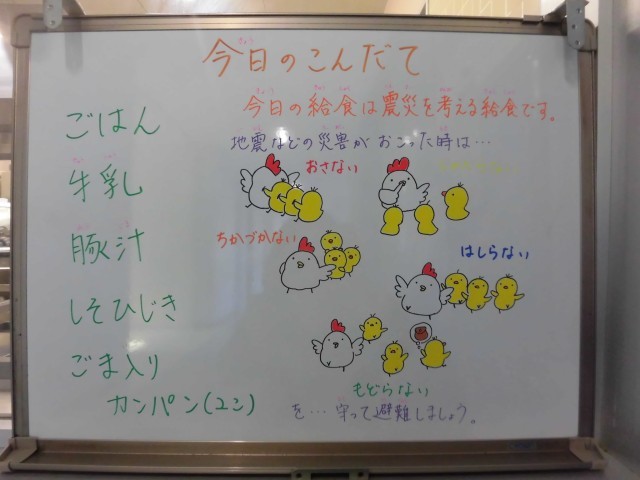 今日のこんだて
ごはん
牛乳
豚汁
しそひじき
ごま入り
カンパン(2コ)
今日の給食は震災を考える給食です。
地震などの災害がおこった時は…
おさない
ちかづかない
はしらない
もどらない
を…守って避難しましょう。